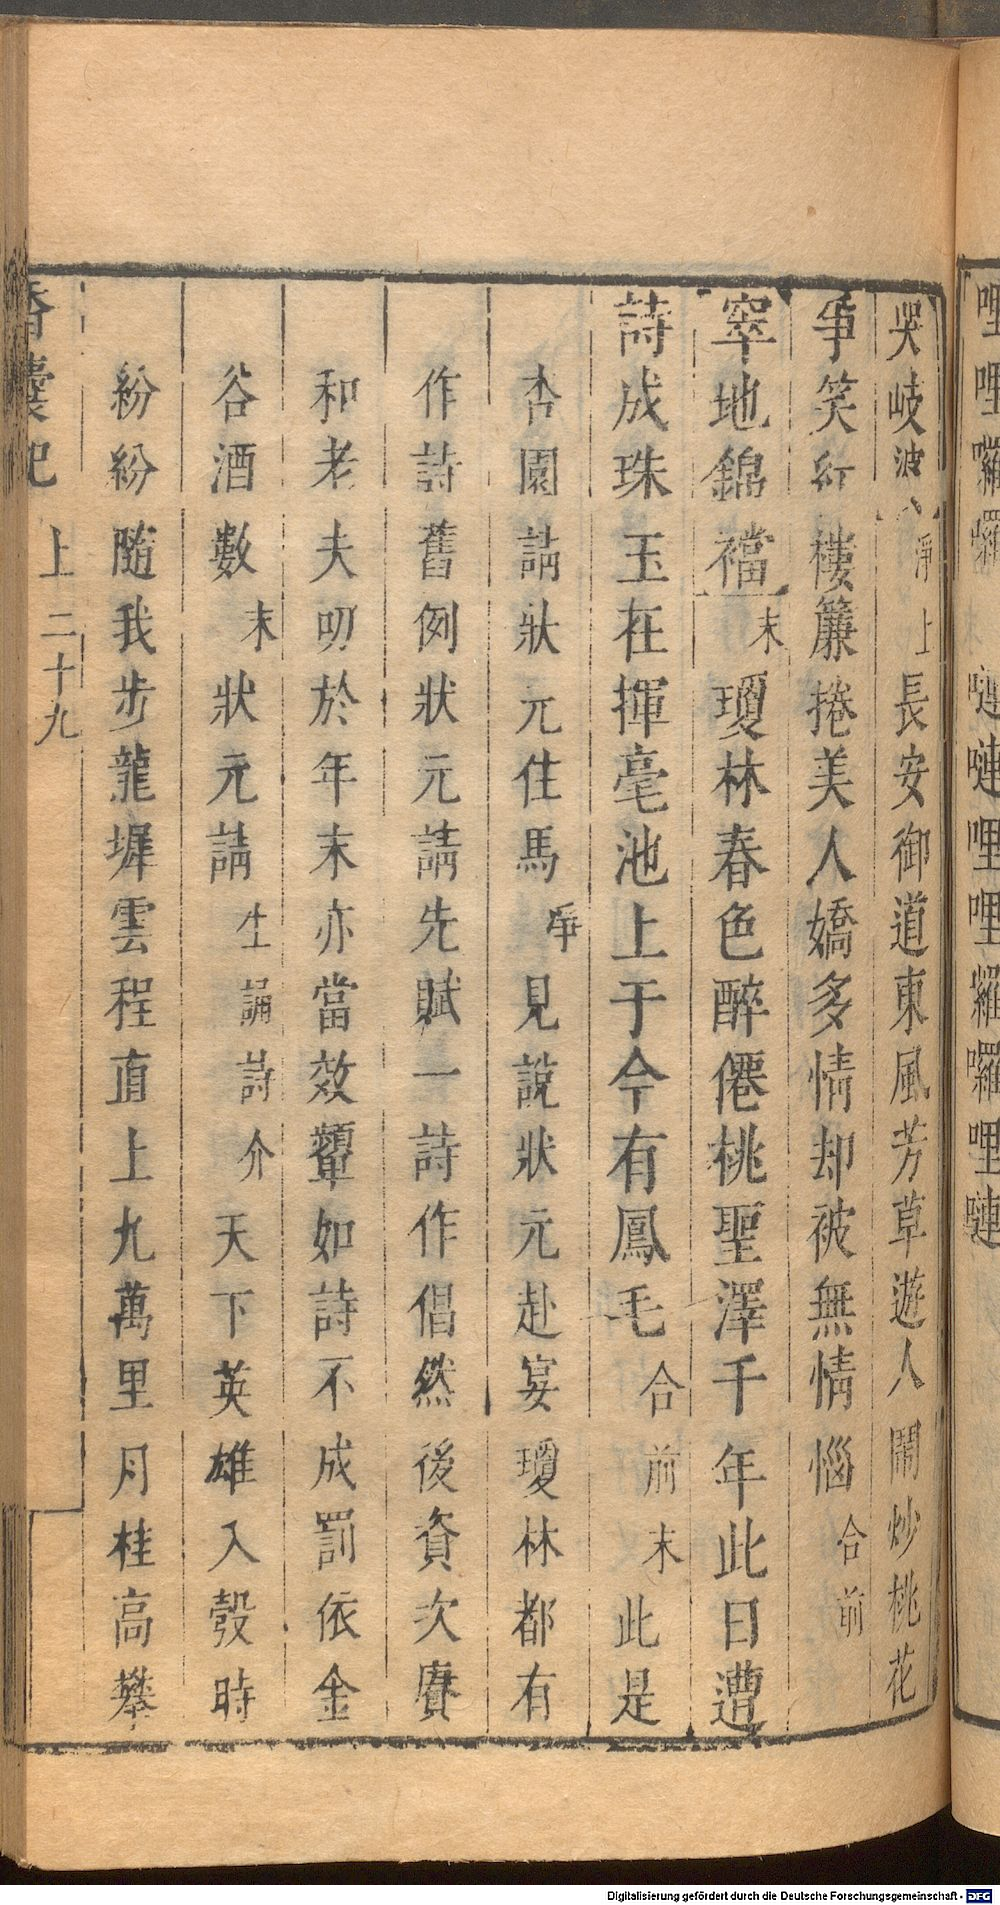 哩哩囉囉 嗹嗹哩哩囉囉哩嗹
哭岐婆 淨上 長安御道東風芳草遊人鬧炒桃花
爭笑 紅樓簾捲美人嬌多情却被無情惱 合前
窣地錦襠 末 瓊林春色醉僊桃聖澤千年此日遭
詩成珠玉在揮毫池上于今有鳳毛 合前 末 此是
杏園請狀元住馬 淨 見說狀元赴宴瓊林都有
作詩舊例狀元請先賦一詩作倡然後資次賡
和老夫叨於年末亦當效顰如詩不成罰依金
谷酒數 末 狀元請 生誦詩介 天下英雄入彀時
紛紛隨我步龍墀雲程直上九萬里月桂高攀
香囊記 上 二十九
Digitalisierung gefördert durch die Deutsche Forschungsgemeinschaft - DFG